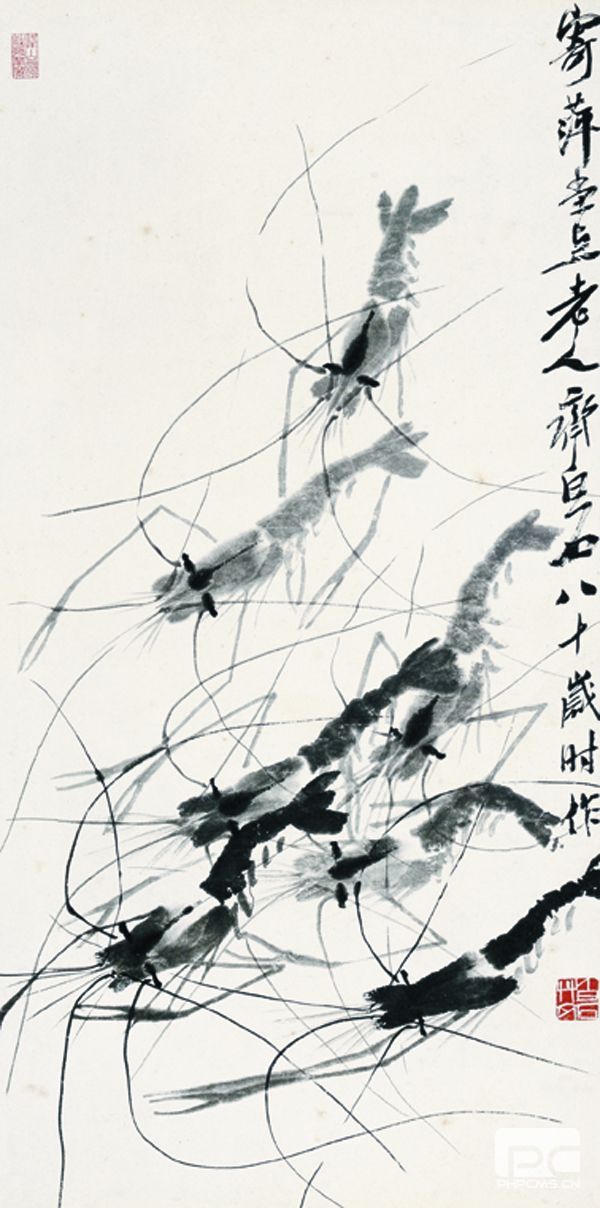 寄萍堂上老人齊白石八十歲时作
PC
PHPCMS.CN